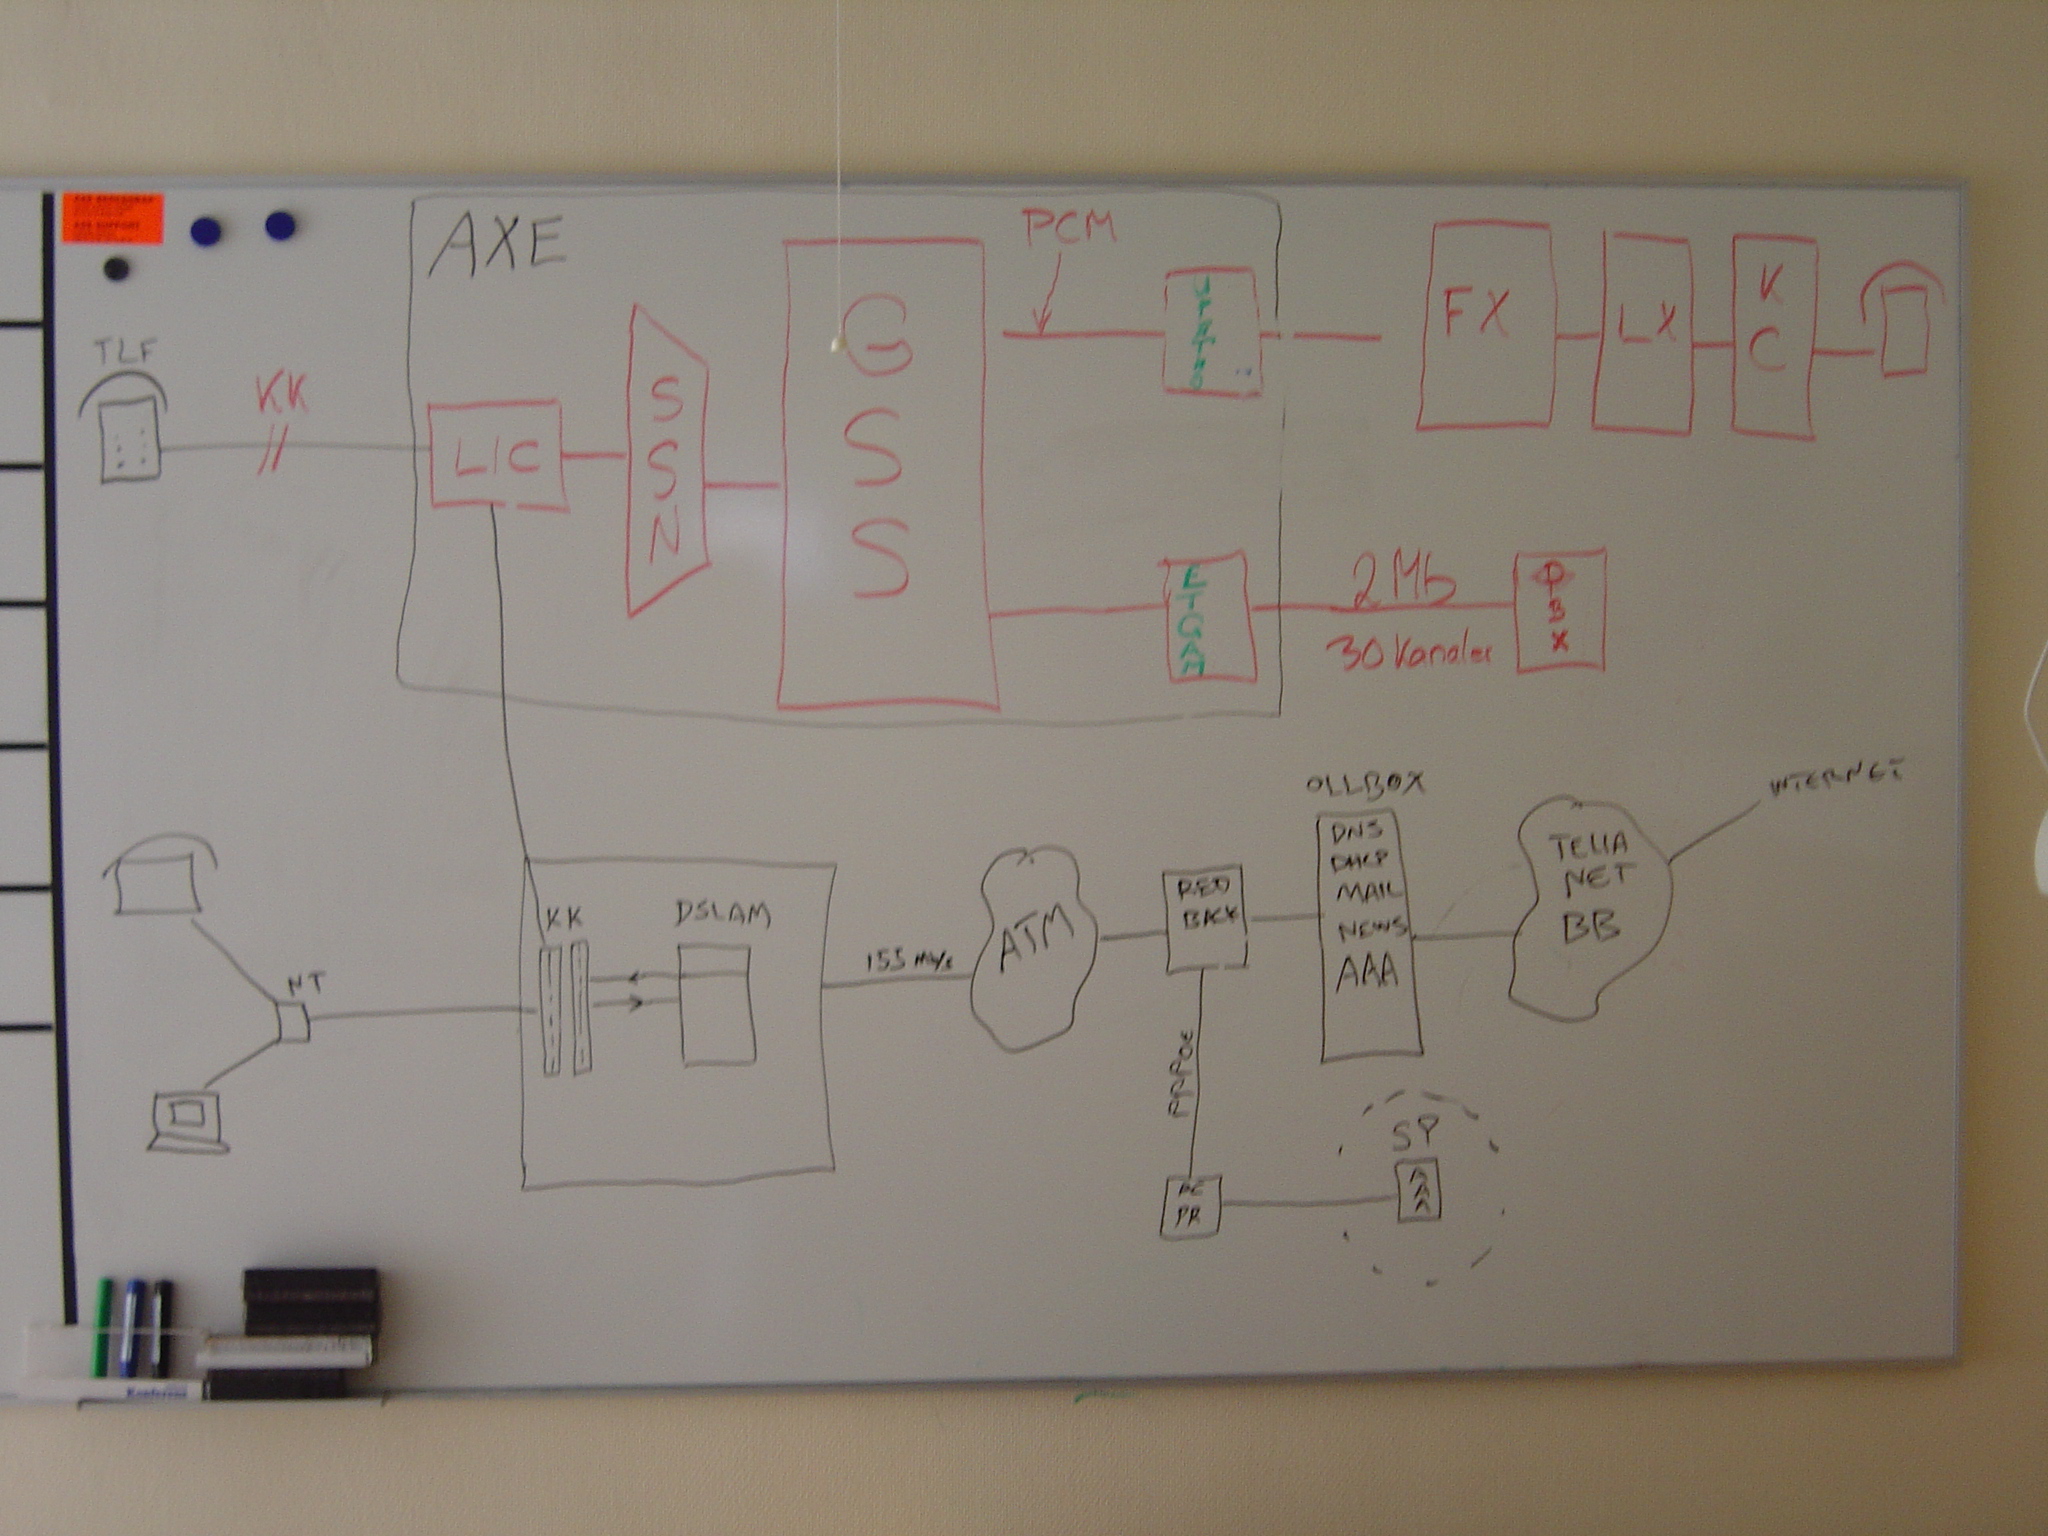 AXE
PCM
TLF
KK
LIC
SSN
GSS
FX
LX
KC
ETCAM
2Mb
30 Kanaler
PBX
INTERNET
OLLBOX
DNS
DHCP
MAIL
NEWS
AAA
TELIA
NET
BB
RED
BACK
ATM
155 Mb/s
KK
DSLAM
NT
PPPoE
SP
AAA
Konferens